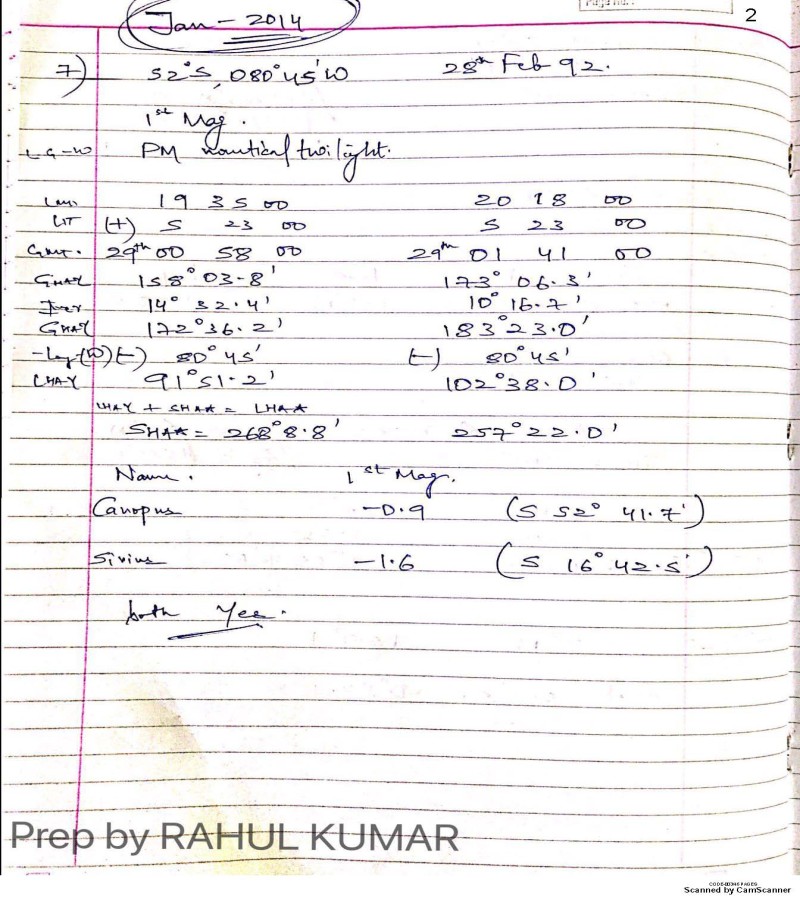 2
Jan - 2014
7) 52°S, 080°45'W 28th Feb 92.
1st Mag.
PM nautical twilight.
LMT 19 35 00 20 18 00
LIT (+) 5 23 00 5 23 00
GMT. 29th 00 58 00 29th 01 41 00
GHAϒ 158° 03.8' 173° 06.3'
Incr 14° 32.4' 10° 16.7'
GHAϒ 172° 36.2' 183° 23.0'
-Long(W) (-) 80° 45' (-) 80° 45'
LHAϒ 91° 51.2' 102° 38.0'
LHAϒ + SHA★ = LHA★
SHA★ = 268° 8.8' 257° 22.0'
Name. 1st Mag.
Canopus -0.9 (S 52° 41.7')
Sirius -1.6 (S 16° 42.5')
both Yes.
Prep by RAHUL KUMAR
Scanned by CamScanner